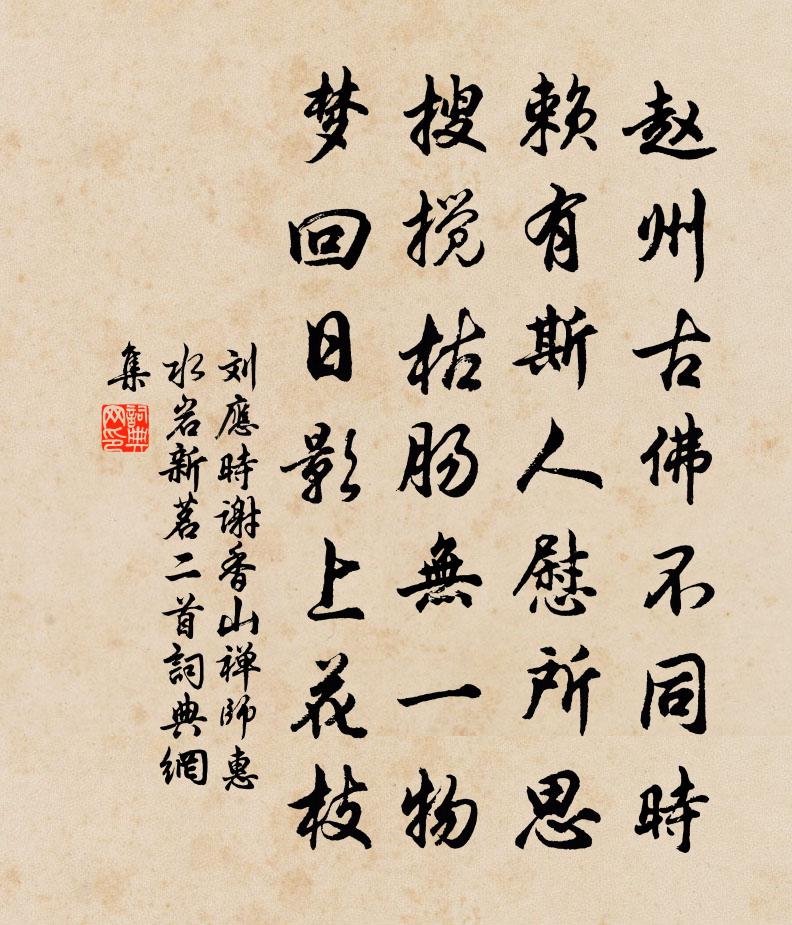 赵州古佛不同時
赖有斯人慰所思
搜搅枯肠無一物
梦回日影上花枝
刘應時谢香山禅師惠
水岩新茗二首詞典網
集
詞典
网印